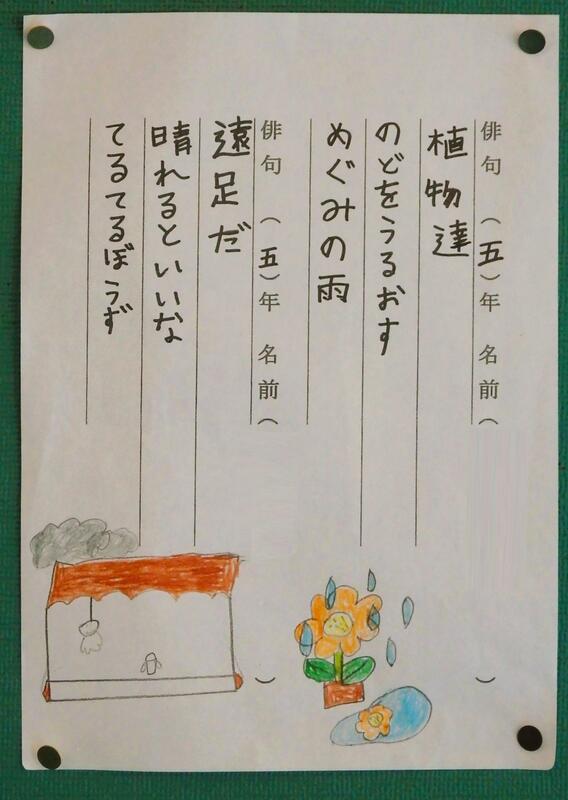 俳句（五）年 名前（ ）
植物達
のどをうるおす
めぐみの雨
俳句（五）年 名前（ ）
遠足だ
晴れるといいな
てるてるぼうず